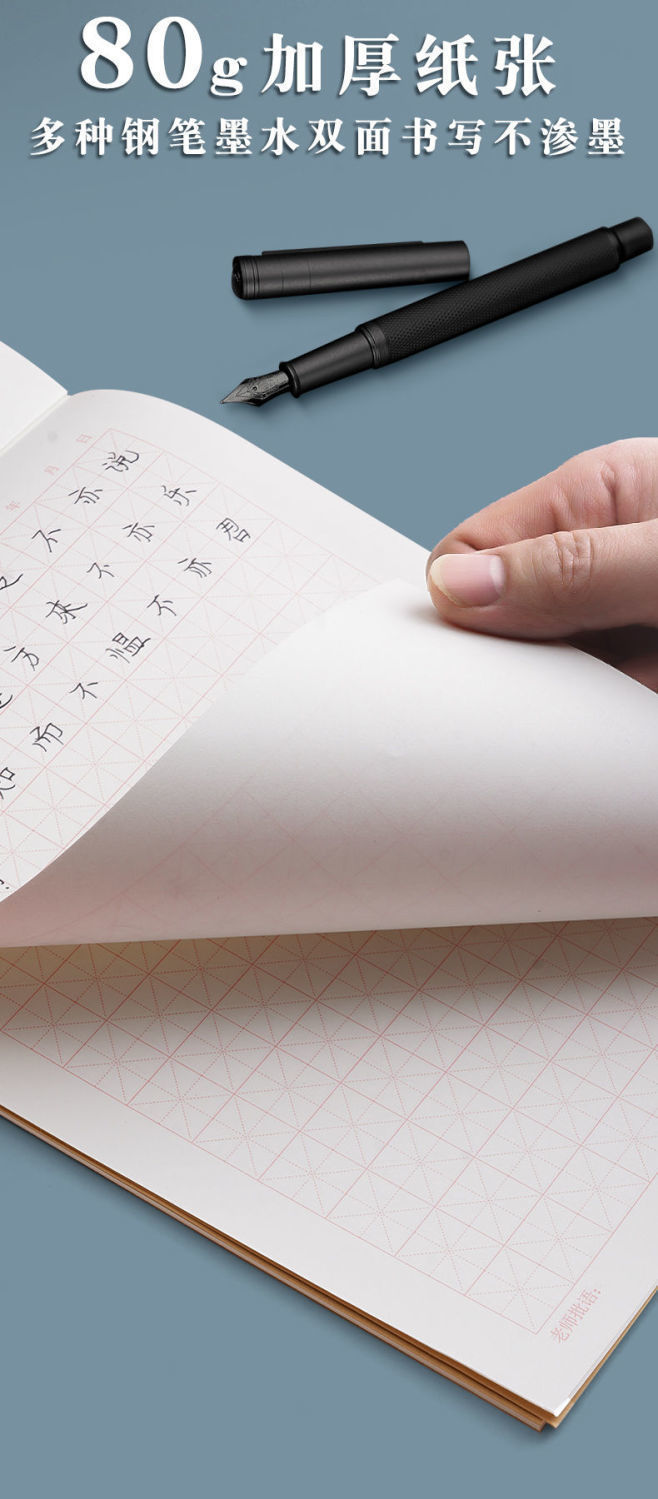 80g加厚纸张
多种钢笔墨水双面书写不渗墨
年 月 日
不亦说
方来不亦乐
知而不愠不亦君
老师批语：